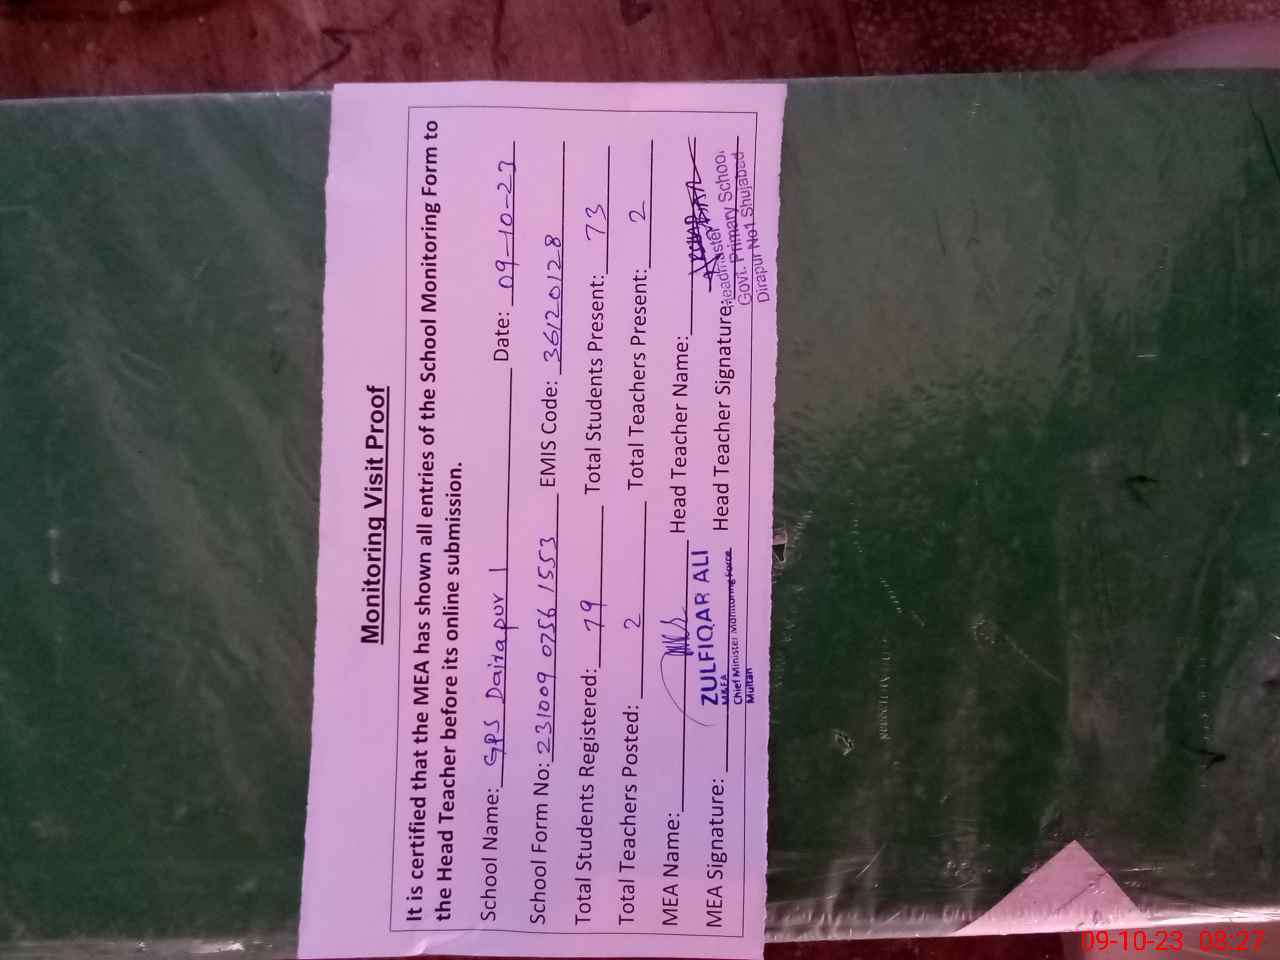 Monitoring Visit Proof
It is certified that the MEA has shown all entries of the School Monitoring Form to
the Head Teacher before its online submission.
School Name: GPS Dairapur 1 Date: 09-10-23
School Form No: 231009 0756 1553 EMIS Code: 36120128
Total Students Registered: 79 Total Students Present: 73
Total Teachers Posted: 2 Total Teachers Present: 2
MEA Name: Head Teacher Name:
MEA Signature: Head Teacher Signature:
ZULFIQAR ALI
M&EA
Chief Minister Monitoring Force
Multan
Headmaster
Govt. Primary School
Dirapur No1 Shujabad
09-10-23 08:27